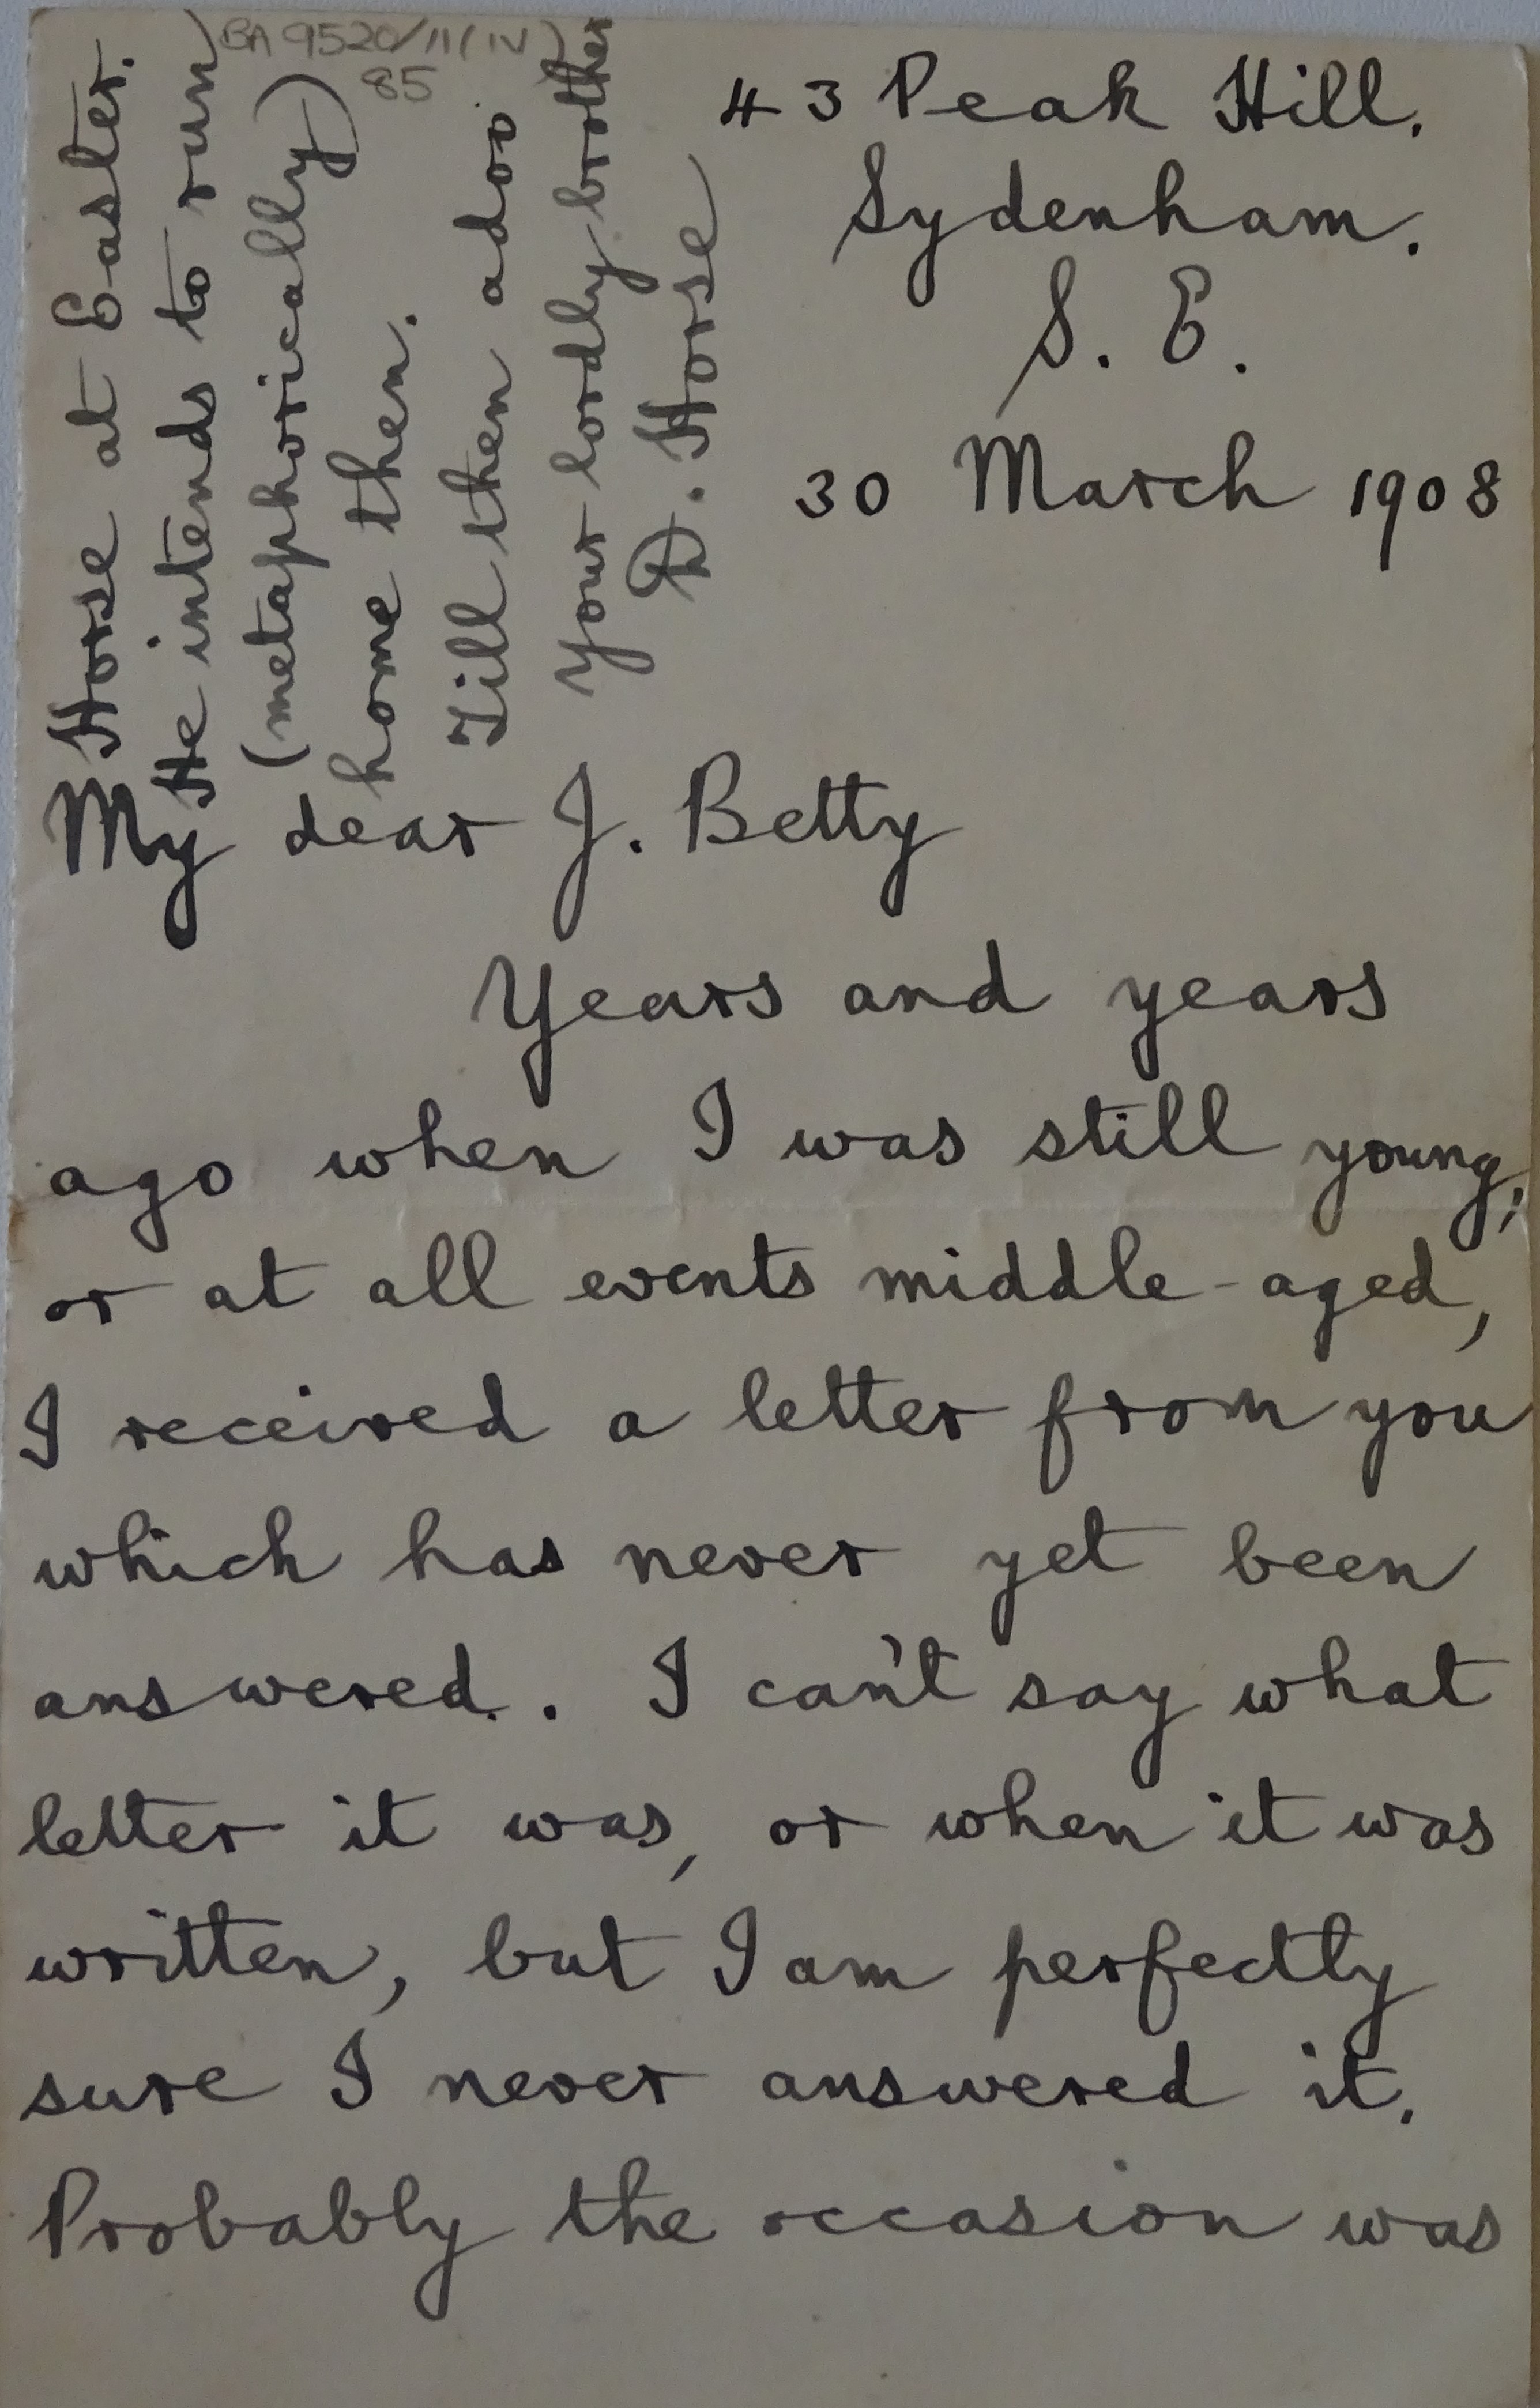 BA 9520/11(iv)
85
43 Peak Hill.
Sydenham.
S. E.
30 March 1908
My dear J. Betty
Years and years
ago when I was still young,
or at all events middle-aged,
I received a letter from you
which has never yet been
answered. I can't say what
letter it was, or when it was
written, but I am perfectly
sure I never answered it.
Probably the occasion was
Horse at Easter.
He intends to run
(metaphorically)
home then.
Till then adoo
Your lordly brother
D. Horse